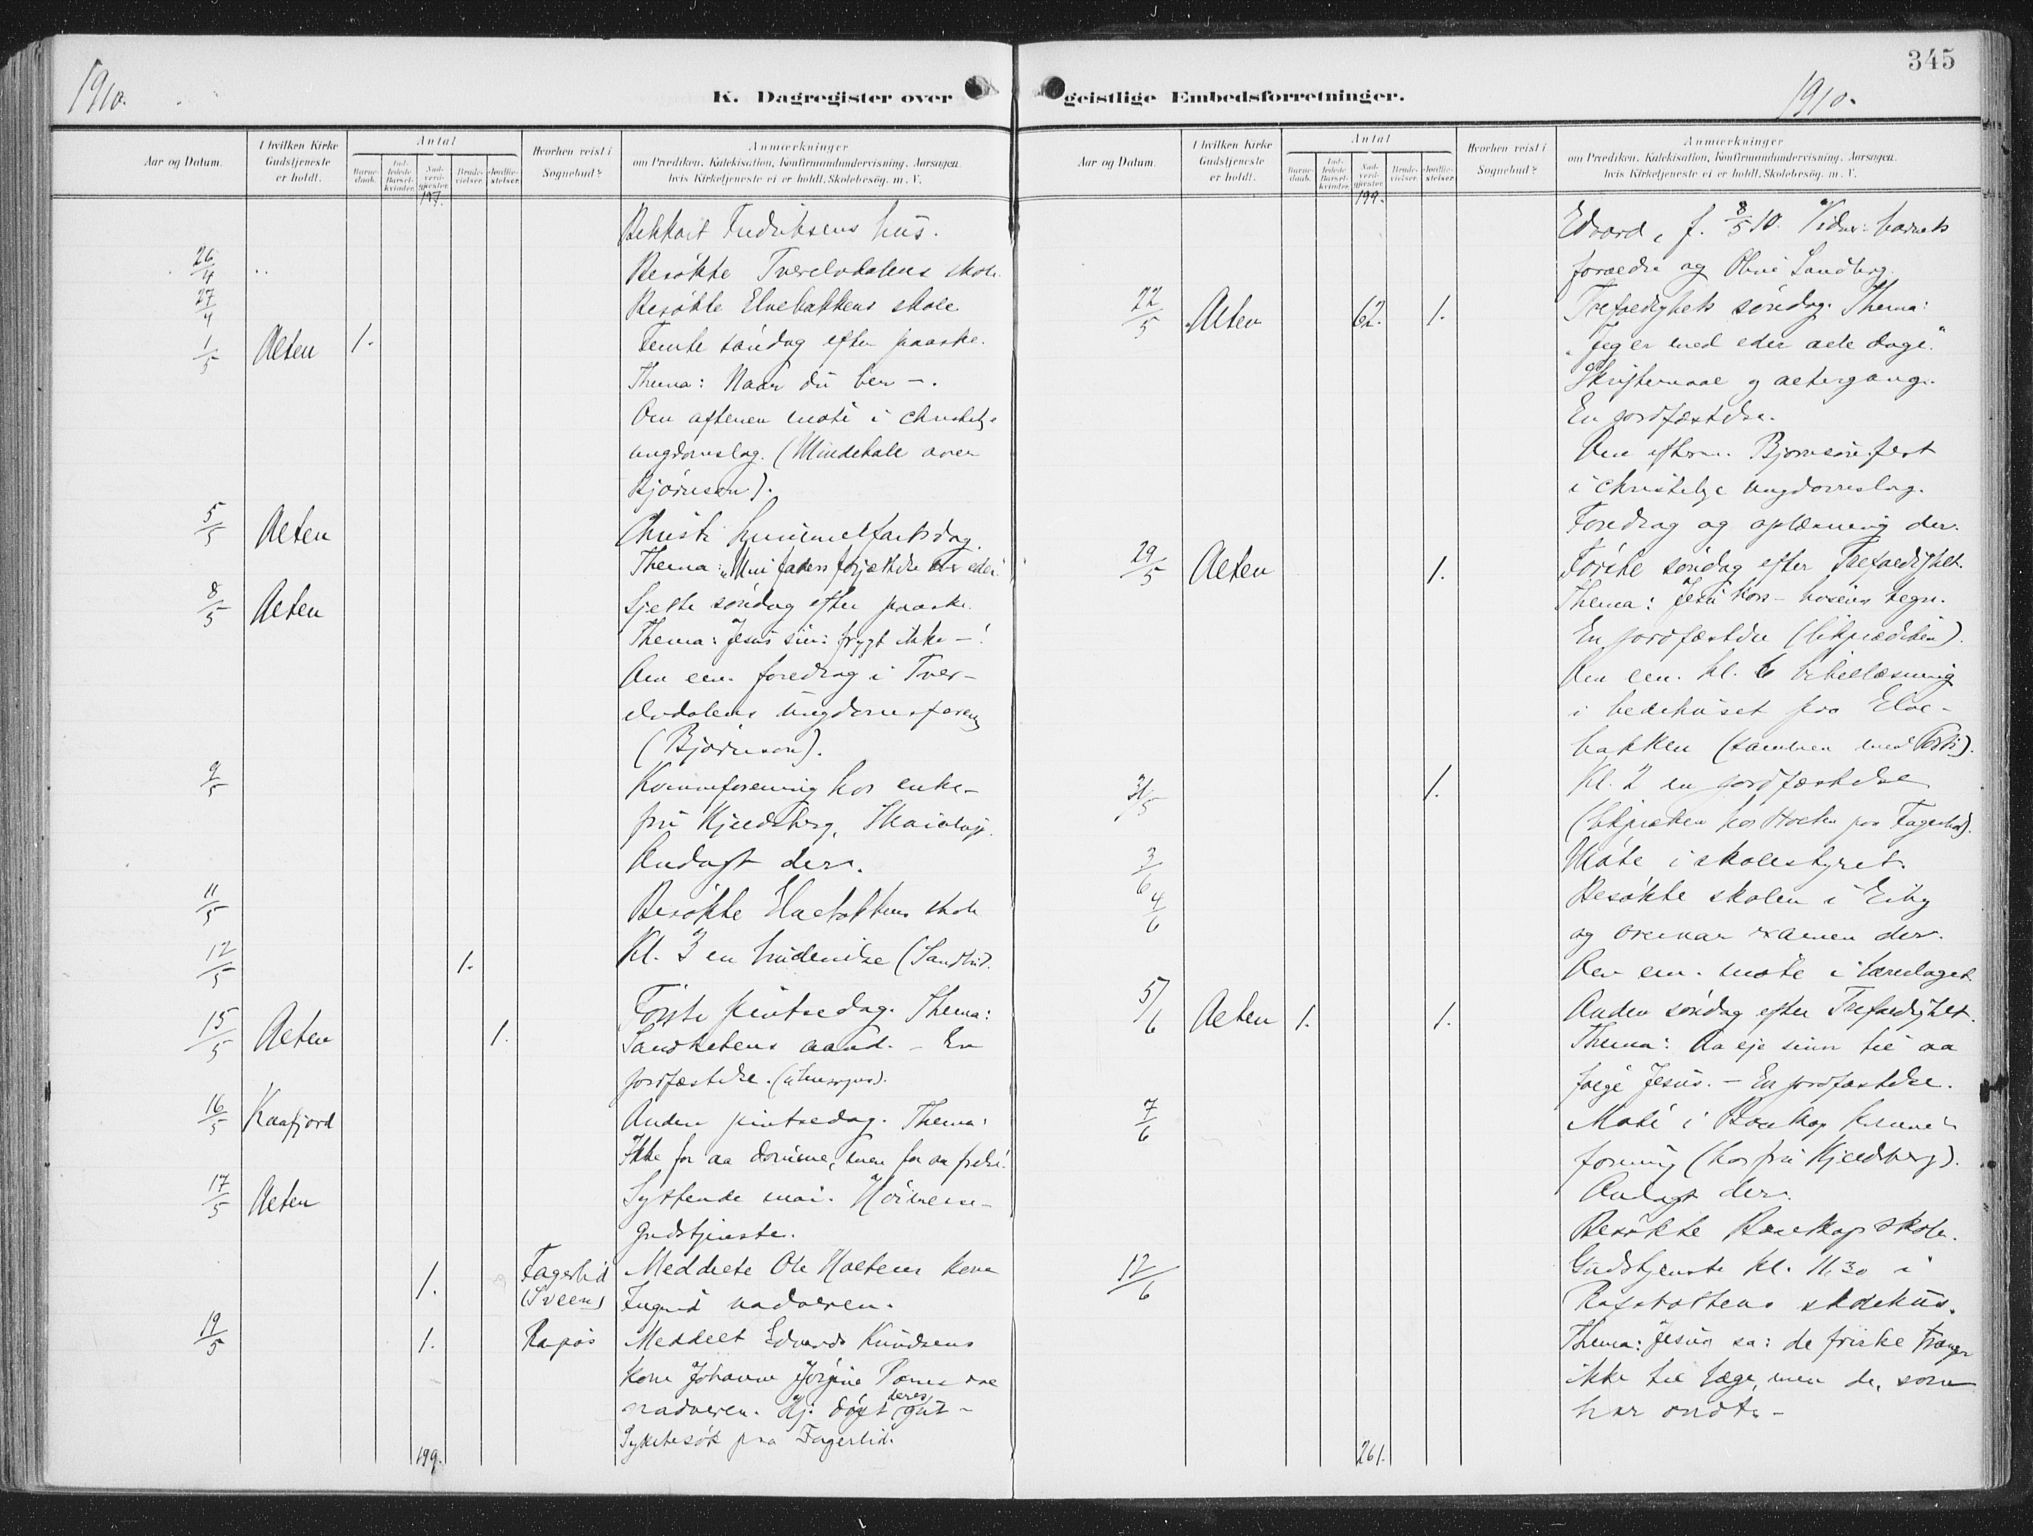 345
1910.
1910.
K. Dagregister over
geistlige Embedsforretninger.
Aar og Datum.
I hvilken Kirke Gudstjeneste er holdt.
Antal
Barnedaab.
Indledede Barselkvinder.
Nadverdgjester.
Brudevielser.
Jordfæstelser.
Hvorhen reist i Sognebud?
Anmærkninger
om Prædiken, Katekisation, Konfirmandundervisning, Aarsagen,
hvis Kirketjeneste ei er holdt, Skolebesøg, m. V.
197.
Fredriksens hus.
26/4 Besøkte Tverelvdalens skole.
27/4 Besøkte Elvebakkens skole
1/5 Alten 1. Femte søndag efter paaske.
Thema: Naar du ber –.
Om aftenen møte i christelig
ungdomslag. (Mindetale over
Bjørnson).
5/5 Alten Christi himmelfartsdag.
Thema: „Min faders forjættelse over eder“
8/5 Alten Sjette søndag efter paaske.
Thema: Jesus sier: frygt ikke –!
Om em. foredrag i Tver-
elvdalens ungdomsforening
(Bjørnson).
9/5 Kvinneforening hos enke-
fru Kjeldsberg,
Andagt der.
11/5 Besøkte Elvebakkens skole
12/5 1. Kl. 3 en brudevielse
15/5 Alten 1. Første pintsedag. Thema:
Sandhetens aand. – En
jordfæstelse.
16/5 Kaafjord Anden pintsedag. Thema:
Ikke for aa dømme, men for aa frelse.
17/5 Alten Syttende mai.
gudstjeneste.
1. Fagerlid (Sveen) Meddelte Ole Holtens kone
Ingrid nadveren.
19/5 1. Rafsbotn Meddelt Edvards Knudsens
kone Johanne Jørgine
nadveren. Hj: døpt deres gut –
Sykebesøk paa Fagerlid.
199.
Aar og Datum.
I hvilken Kirke Gudstjeneste er holdt.
Antal
Barnedaab.
Indledede Barselkvinder.
Nadverdgjester.
Brudevielser.
Jordfæstelser.
Hvorhen reist i Sognebud?
Anmærkninger
om Prædiken, Katekisation, Konfirmandundervisning, Aarsagen,
hvis Kirketjeneste ei er holdt, Skolebesøg, m. V.
199.
Edvard, f. 8/5 10. Vidner: barnets
forældre og Sandberg.
22/5 Alten 62. 1. Trefoldighets søndag. Thema:
„Jeg er med eder alle dage.“
Skriftemaal og altergang.
En jordfæstelse.
Om efterm. Bjørnsonfest
i christelige ungdomslag.
Foredrag og oplæsning der.
29/5 Alten 1. Første søndag efter Trefoldighet.
Thema: Jesu kors – tegn.
En jordfæstelse (likprædiken).
Om em. kl. 6 bibellæsning
i bedehuset paa Elve-
bakken (sammen med
31/5 1. Kl. 2 en jordfæstelse
(likpræken hos Holten paa Fagerlid).
3/6 Møte i skolestyret.
4/6 Besøkte skolen i Eiby
og overvar examen der.
Om em. møte i lærerlaget.
5/6 Alten 1. 1. Anden søndag efter Trefoldighet.
Thema: Aa eje sinn til aa
følge Jesus. – En jordfæstelse.
7/6 Møte i Bossekop kvinne-
forening (hos fru Kjeldsberg).
Andagt der.
Besøkte Bossekop skole.
12/6 Gudstjeneste kl. 11,30 i
Rafsbottens skolehus.
Thema: Jesus sa: de friske trænger
ikke til læge, men de, som
har ondt. –
261.